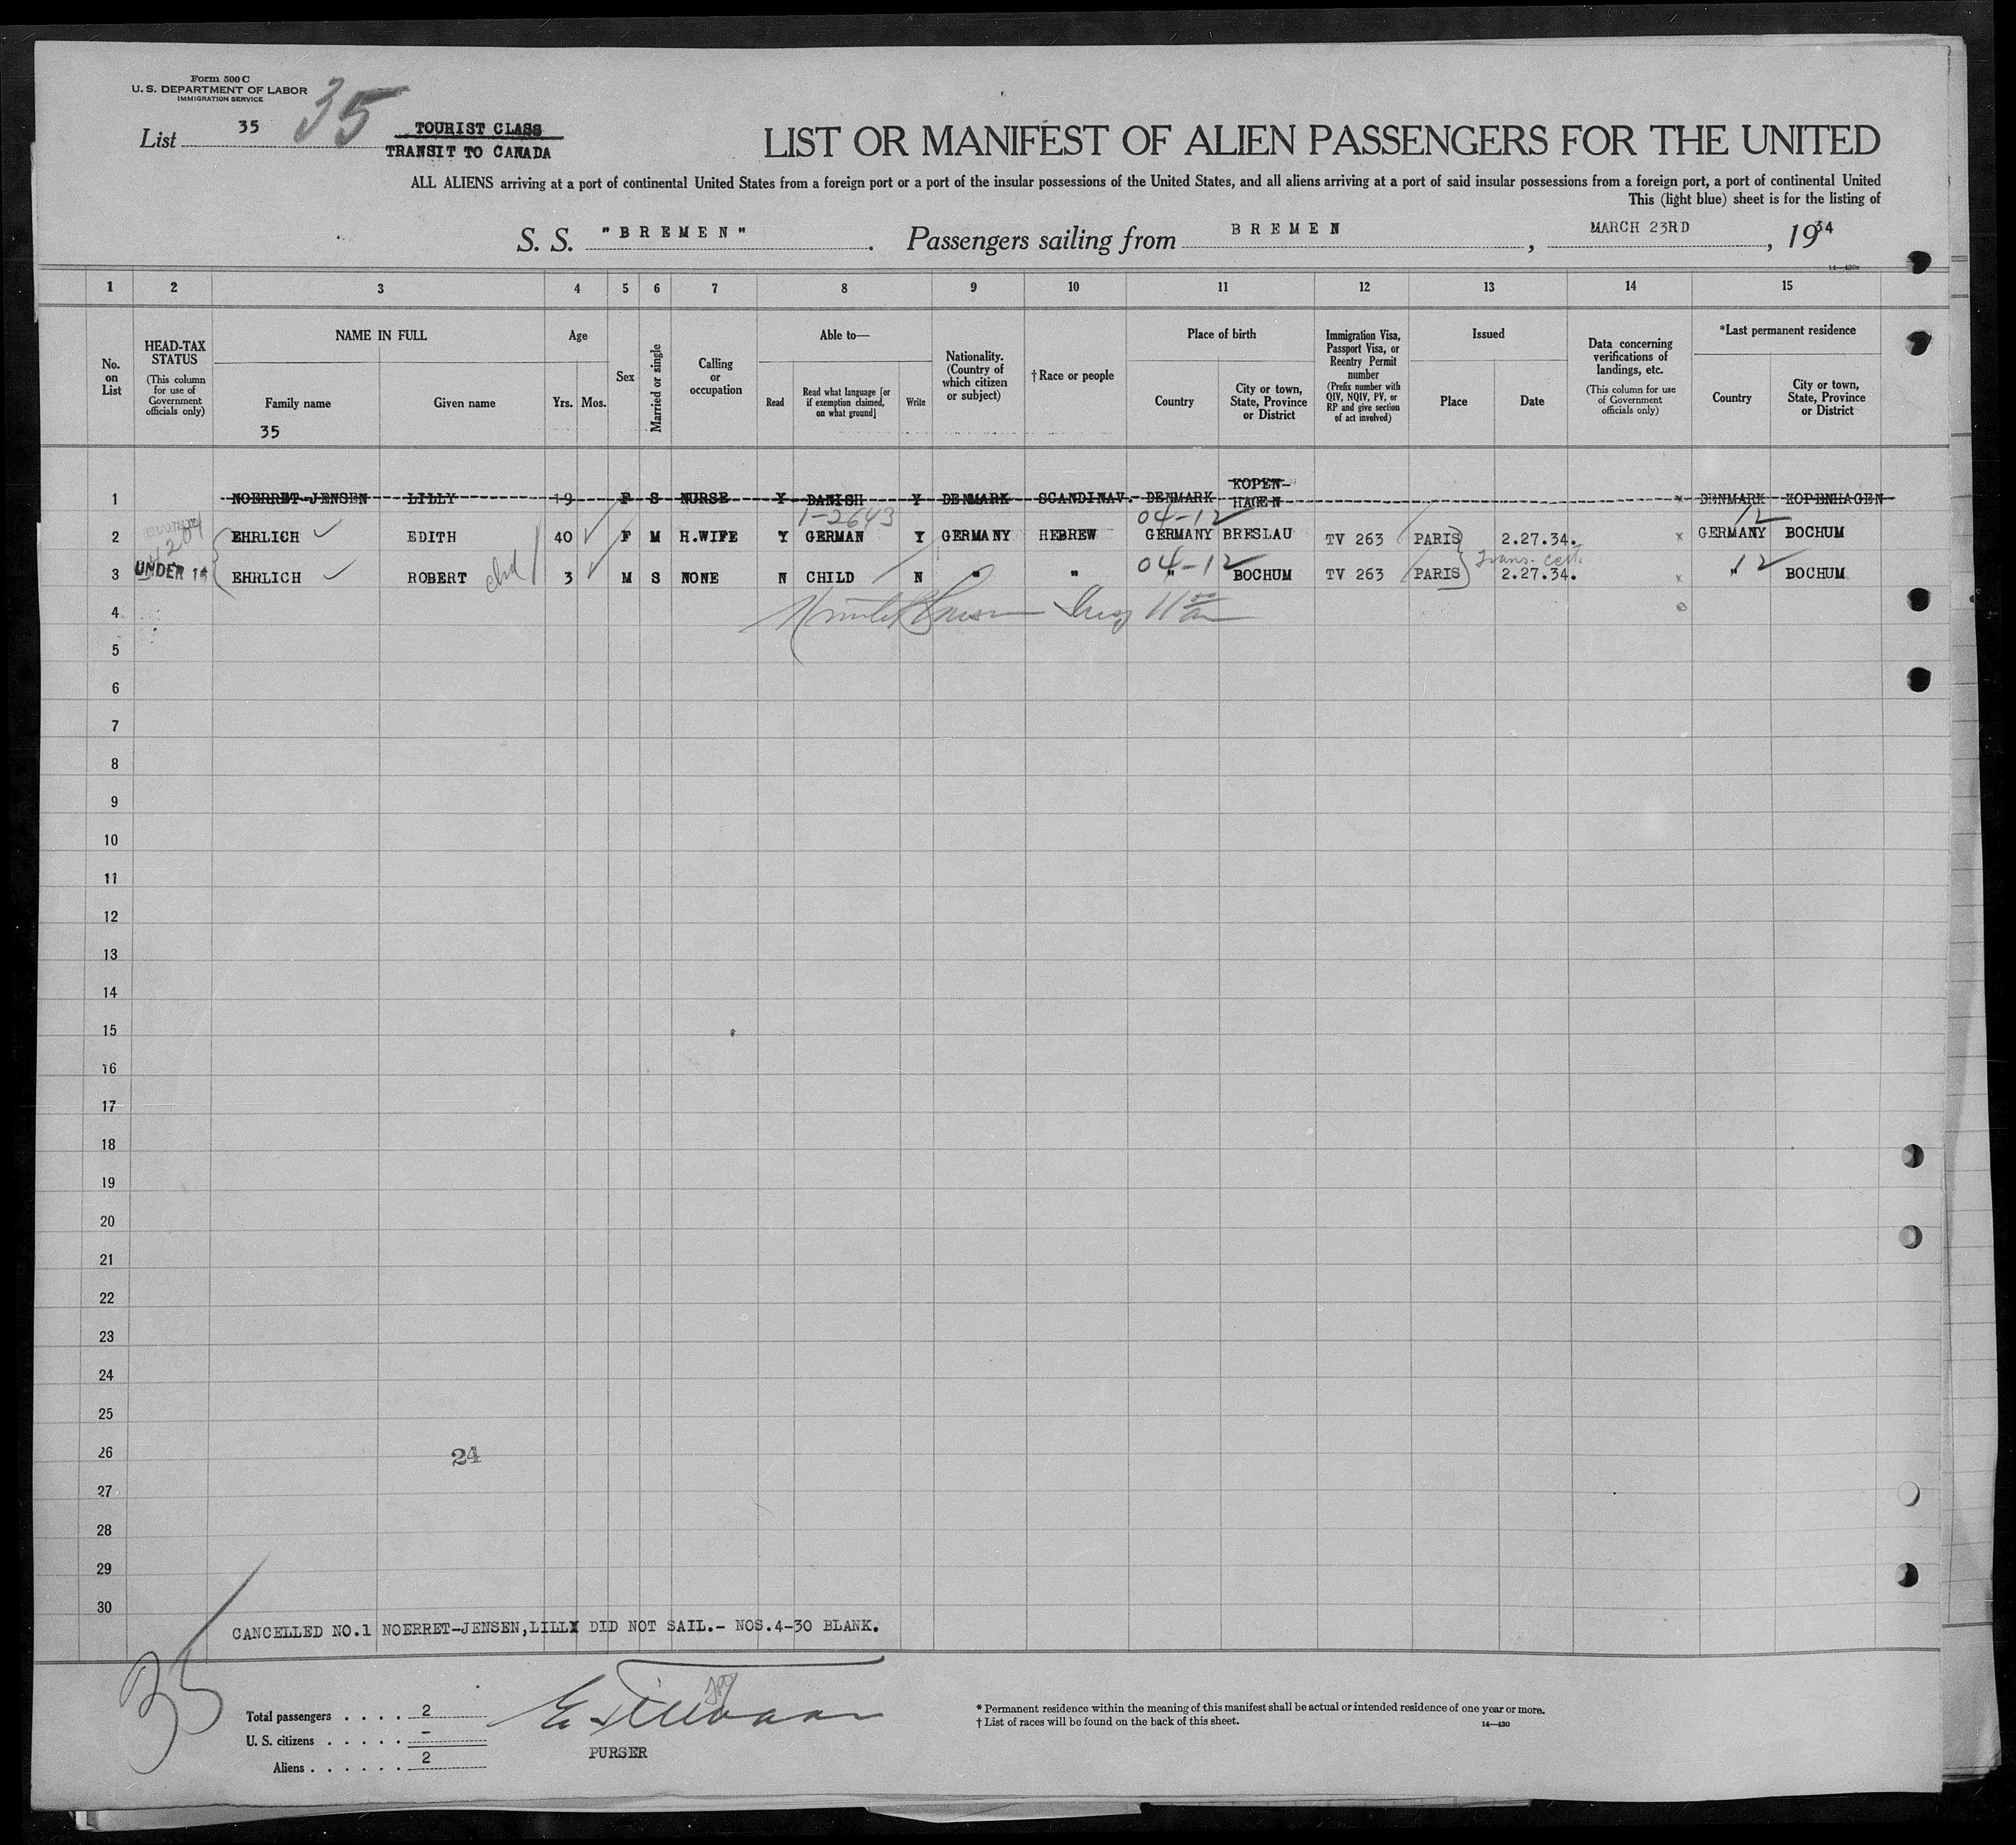 Form 500 C
U. S. DEPARTMENT OF LABOR
IMMIGRATION SERVICE
List 35 35 TOURIST CLASS
TRANSIT TO CANADA
LIST OR MANIFEST OF ALIEN PASSENGERS FOR THE UNITED
ALL ALIENS arriving at a port of continental United States from a foreign port or a port of the insular possessions of the United States, and all aliens arriving at a port of said insular possessions from a foreign port, a port of continental United
This (light blue) sheet is for the listing of
S. S. "BREMEN". Passengers sailing from BREMEN, MARCH 23RD, 1934
14—430c
1 2 3 4 5 6 7 8 9 10 11 12 13 14 15
No. on List
HEAD-TAX STATUS (This column for use of Government officials only)
NAME IN FULL Family name Given name
35
Age Yrs. Mos.
Sex
Married or single
Calling or occupation
Able to— Read Read what language [or if exemption claimed, on what ground] Write
Nationality. (Country of which citizen or subject)
† Race or people
Place of birth Country City or town, State, Province or District
Immigration Visa, Passport Visa, or Reentry Permit number (Prefix number with QIV, NQIV, PV, or RP and give section of act involved)
Issued Place Date
Data concerning verifications of landings, etc. (This column for use of Government officials only)
*Last permanent residence Country City or town, State, Province or District
1 NOERRET-JENSEN LILLY 19 F S NURSE Y DANISH Y DENMARK SCANDINAV. DENMARK KOPEN-HAGEN x DENMARK KOPENHAGEN
1-2643 04-12 12
2 EHRLICH EDITH 40 F M H.WIFE Y GERMAN Y GERMANY HEBREW GERMANY BRESLAU TV 263 PARIS 2.27.34. x GERMANY BOCHUM
04-12 Trans. Cert. 12
3 UNDER 16 EHRLICH ROBERT chd 3 M S NONE N CHILD N " " " BOCHUM TV 263 PARIS 2.27.34. x " BOCHUM
4
5
6
7
8
9
10
11
12
13
14
15
16
17
18
19
20
21
22
23
24
25
26 24
27
28
29
30
CANCELLED NO.1 NOERRET-JENSEN, LILLY DID NOT SAIL.- NOS.4-30 BLANK.
35
Total passengers . . . . 2
U. S. citizens . . . . . –
Aliens . . . . . . 2
PURSER
* Permanent residence within the meaning of this manifest shall be actual or intended residence of one year or more.
† List of races will be found on the back of this sheet.
14—430